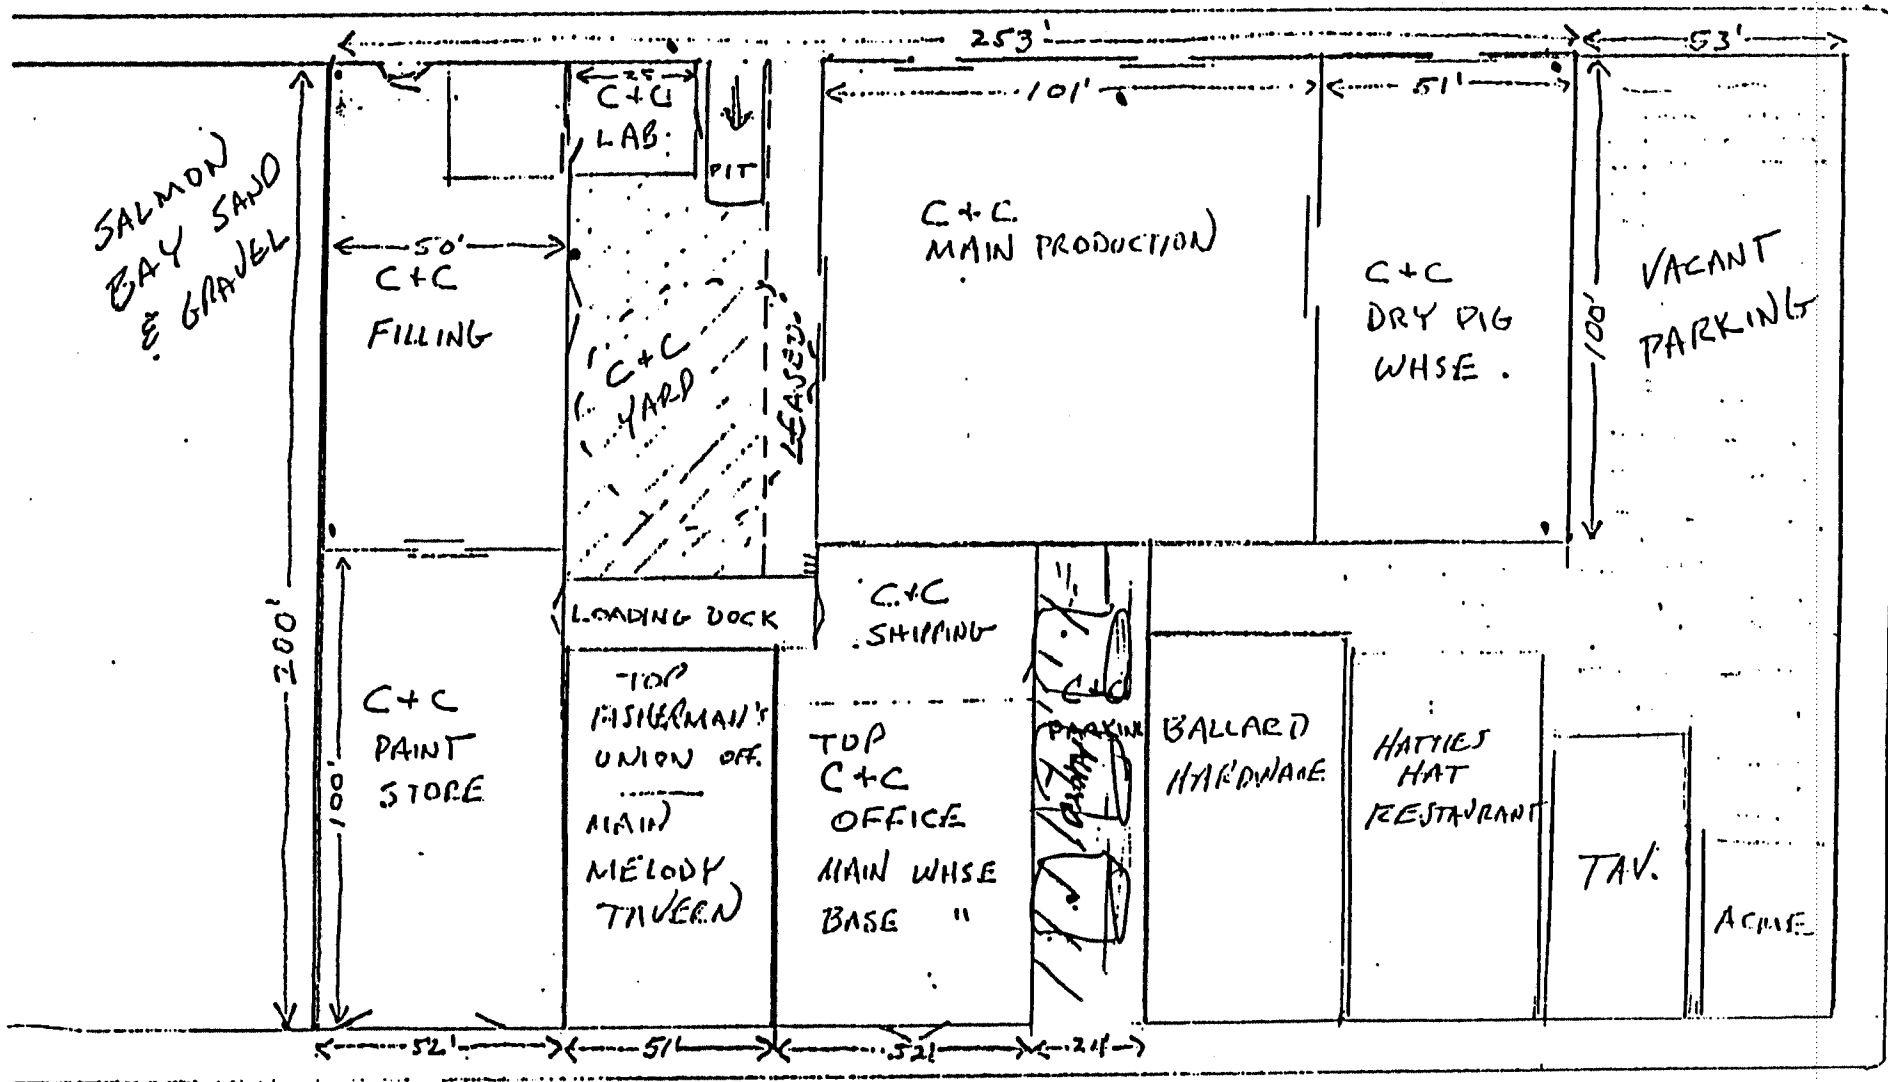 253'
53'
25
101'
51'
C+C
LAB.
PIT
SALMON
BAY SAND
& GRAVEL
50'
C+C
FILLING
C+C
YARD
LEASED
C+C
MAIN PRODUCTION
C+C
DRY PIG
WHSE.
100'
VACANT
PARKING
200'
100'
LOADING DOCK
C+C
SHIPPING
C+C
PAINT
STORE
TOP
FISHERMAN'S
UNION OFF.
MAIN
MELODY
TAVERN
TOP
C+C
OFFICE
MAIN WHSE
BASE "
C+C
PARKING
BALLARD
HARDWARE
HATTIES
HAT
RESTAURANT
TAV.
ACME
52'
51'
52'
24